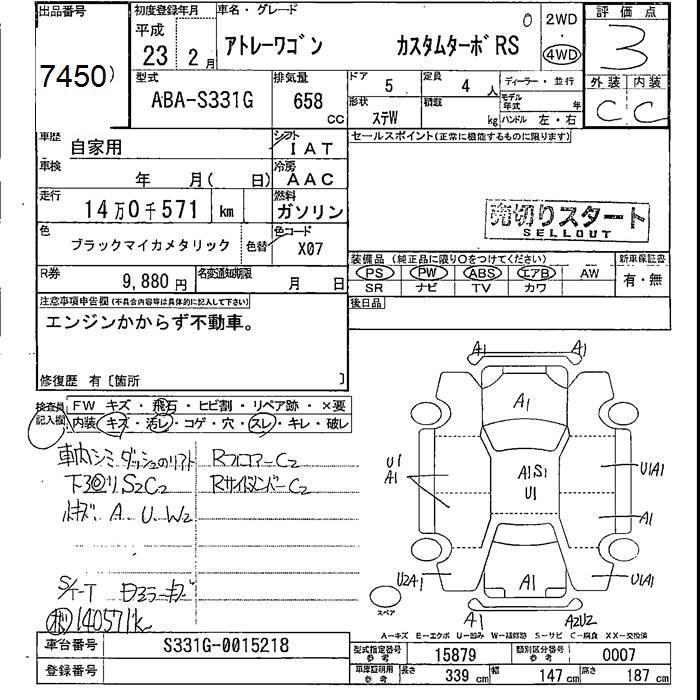 出品番号
7450)
初度登録年月
平成
23 2 月
車名・グレード
アトレーワゴン カスタムターボRS
0
2WD
4WD
評価点
3
外装 内装
C C
型式
ABA-S331G
排気量
658
CC
ドア
5
定員
4 人
形状
ステW
積載
kg
ディーラー・並行
モデル年式 年
ハンドル 左・右
車歴
自家用
シフト
IAT
セールスポイント(正常に機能するものに限ります)
車検
年 月( 日)
冷房
AAC
走行
14万0千571 km
燃料
ガソリン
売切りスタート
SELLOUT
色
ブラックマイカメタリック
色替
色コード
X07
装備品 (純正品に限り○をつけてください)
新車保証書
PS PW ABS エアB AW
有・無
SR ナビ TV カワ
R券
9,880 円
名変通知期限
月 日
後日品
注意事項申告欄(不具合内容等は具体的に記入して下さい)
エンジンかからず不動車。
修復歴 有〔箇所 〕
検査員
記入欄
FW キズ・飛石・ヒビ割・リペア跡・×要
内装 キズ・汚レ・コゲ・穴・スレ・キレ・破レ
車内シミ ダッシュのリフト
RフロアーC2
S2C2
RサイドメンバーC2
A. U. W2
140571k
A1
A1
A1
U1
A1
A1S1
U1
U1A1
A1
U2A1
A1
U1A1
スペア
A1
A2U2
A-キズ E-エクボ U-凹み W-補修跡 S-サビ C-腐食 XX-交換済
車台番号
S331G-0015218
型式指定番号
参考
15879
類別区分番号
参考
0007
登録番号
車庫証明用
参考
長さ
339 cm
幅
147 cm
高さ
187 cm